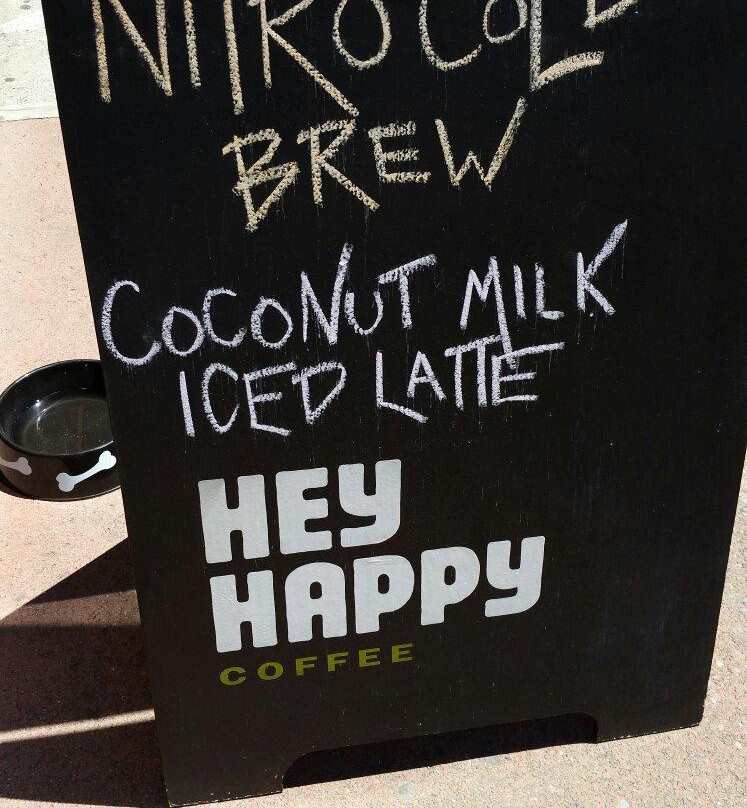 NITRO COLD
BREW
COCONUT MILK
ICED LATTE
HEY
HAPPY
COFFEE